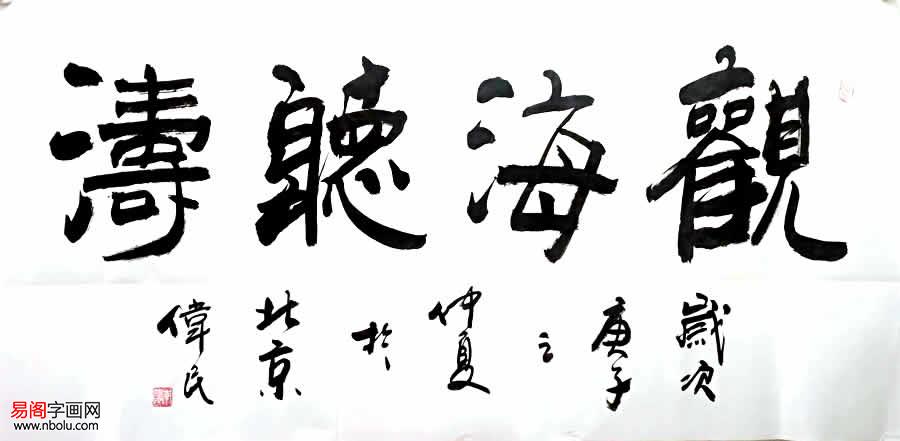 觀海聽濤
歲次
庚子
之
仲夏
於
北京
偉民
易阁字画网
www.nbolu.com